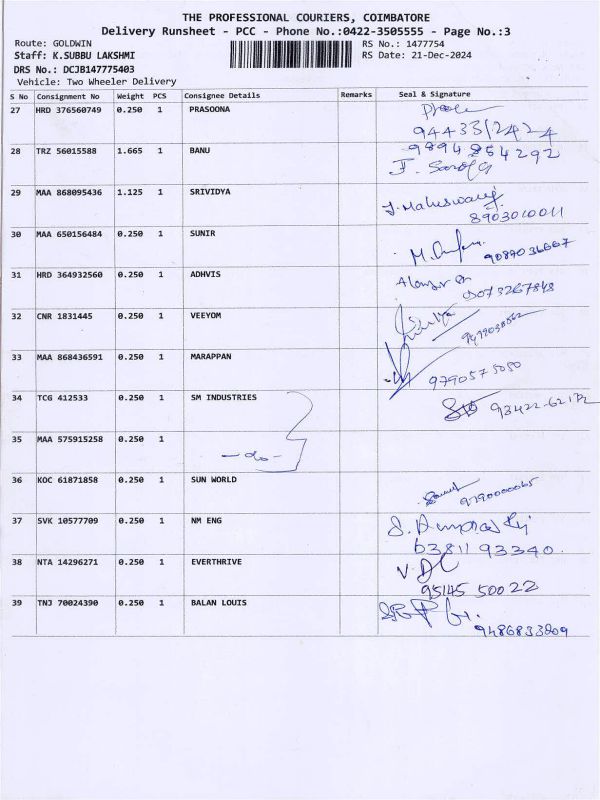 THE PROFESSIONAL COURIERS, COIMBATORE
Delivery Runsheet - PCC - Phone No.:0422-3505555 - Page No.:3
Route: GOLDWIN
RS No.: 1477754
Staff: K.SUBBU LAKSHMI
RS Date: 21-Dec-2024
DRS No.: DCJB147775403
Vehicle: Two Wheeler Delivery
S No Consignment No Weight PCS Consignee Details Remarks Seal & Signature
27 HRD 376560749 0.250 1 PRASOONA
9443312424
28 TRZ 56015588 1.665 1 BANU 9894854292
29 MAA 868095436 1.125 1 SRIVIDYA
J. Maheswari
8903010011
30 MAA 650156484 0.250 1 SUNIR
9089036667
31 HRD 364932560 0.250 1 ADHVIS
32 CNR 1831445 0.250 1 VEEYOM
33 MAA 868436591 0.250 1 MARAPPAN
9790575050
34 TCG 412533 0.250 1 SM INDUSTRIES
35 MAA 575915258 0.250 1
-do-
36 KOC 61871858 0.250 1 SUN WORLD
9790000065
37 SVK 10577709 0.250 1 NM ENG
63811 93340.
38 NTA 14296271 0.250 1 EVERTHRIVE
95145 50022
39 TNJ 70024390 0.250 1 BALAN LOUIS
9486833809